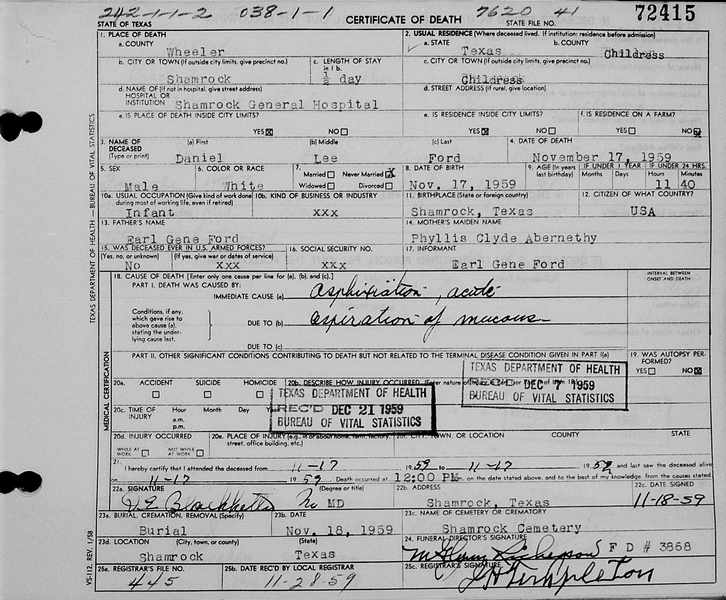 242-1-1-2 038-1-1 7620 41 72415
STATE OF TEXAS CERTIFICATE OF DEATH STATE FILE NO.
1. PLACE OF DEATH 2. USUAL RESIDENCE (Where deceased lived. If institution: residence before admission)
a. COUNTY a. STATE b. COUNTY
Wheeler Texas Childress
b. CITY OR TOWN (If outside city limits, give precinct no.) c. LENGTH OF STAY c. CITY OR TOWN (If outside city limits, give precinct no.)
in 1 b.
Shamrock ½ day Childress
d. NAME OF (If not in hospital, give street address) d. STREET ADDRESS (If rural, give location)
HOSPITAL OR
INSTITUTION Shamrock General Hospital
e. IS PLACE OF DEATH INSIDE CITY LIMITS? e. IS RESIDENCE INSIDE CITY LIMITS? f. IS RESIDENCE ON A FARM?
YES NO YES NO YES NO
3. NAME OF (a) First (b) Middle (c) Last 4. DATE OF DEATH
DECEASED
(Type or print) Daniel Lee Ford November 17, 1959
5. SEX 6. COLOR OR RACE 7. Married Never Married X 8. DATE OF BIRTH 9. AGE (In years last birthday) IF UNDER 1 YEAR IF UNDER 24 HRS.
Months Days Hours Minutes
Male White Widowed Divorced Nov. 17, 1959 11 40
10a. USUAL OCCUPATION (Give kind of work done during most of working life, even if retired) 10b. KIND OF BUSINESS OR INDUSTRY 11. BIRTHPLACE (State or foreign country) 12. CITIZEN OF WHAT COUNTRY?
Infant xxx Shamrock, Texas USA
13. FATHER'S NAME 14. MOTHER'S MAIDEN NAME
Earl Gene Ford Phyllis Clyde Abernethy
15. WAS DECEASED EVER IN U.S. ARMED FORCES? 16. SOCIAL SECURITY NO. 17. INFORMANT
(Yes, no, or unknown) (If yes, give war or dates of service)
No xxx xxx Earl Gene Ford
18. CAUSE OF DEATH [Enter only one cause per line for (a), (b), and (c).] INTERVAL BETWEEN
ONSET AND DEATH
PART I. DEATH WAS CAUSED BY:
IMMEDIATE CAUSE (a) Asphixiation, acute
Conditions, if any, which gave rise to above cause (a), stating the underlying cause last.
DUE TO (b) aspiration of mucous
DUE TO (c)
PART II. OTHER SIGNIFICANT CONDITIONS CONTRIBUTING TO DEATH BUT NOT RELATED TO THE TERMINAL DISEASE CONDITION GIVEN IN PART I(a) 19. WAS AUTOPSY PERFORMED?
YES NO
TEXAS DEPARTMENT OF HEALTH
REC'D DEC 7 1959
BUREAU OF VITAL STATISTICS
20a. ACCIDENT SUICIDE HOMICIDE 20b. DESCRIBE HOW INJURY OCCURRED.
TEXAS DEPARTMENT OF HEALTH
REC'D DEC 21 1959
BUREAU OF VITAL STATISTICS
20c. TIME OF INJURY Hour Month Day Year
a.m.
p.m.
20d. INJURY OCCURRED 20e. PLACE OF INJURY CITY, TOWN, OR LOCATION COUNTY STATE
WHILE AT WORK NOT WHILE AT WORK street, office building, etc.)
21. I hereby certify that I attended the deceased from 11-17 1959 to 11-17 1959, and last saw the deceased alive
on 11-17 1959. Death occurred at 12:00 PM, on the date stated above; and to the best of my knowledge, from the causes stated.
22a. SIGNATURE (Degree or title) 22b. ADDRESS 22c. DATE SIGNED
MD Shamrock, Texas 11-18-59
23a. BURIAL, CREMATION, REMOVAL (Specify) 23b. DATE 23c. NAME OF CEMETERY OR CREMATORY
Burial Nov. 18, 1959 Shamrock Cemetery
23d. LOCATION (City, town, or county) (State) 24. FUNERAL DIRECTOR'S SIGNATURE
Shamrock Texas F D # 3868
25a. REGISTRAR'S FILE NO. 25b. DATE REC'D BY LOCAL REGISTRAR 25c. REGISTRAR'S SIGNATURE
445 11-28-59 Templeton
TEXAS DEPARTMENT OF HEALTH — BUREAU OF VITAL STATISTICS
MEDICAL CERTIFICATION
VS-112, REV. 1/58